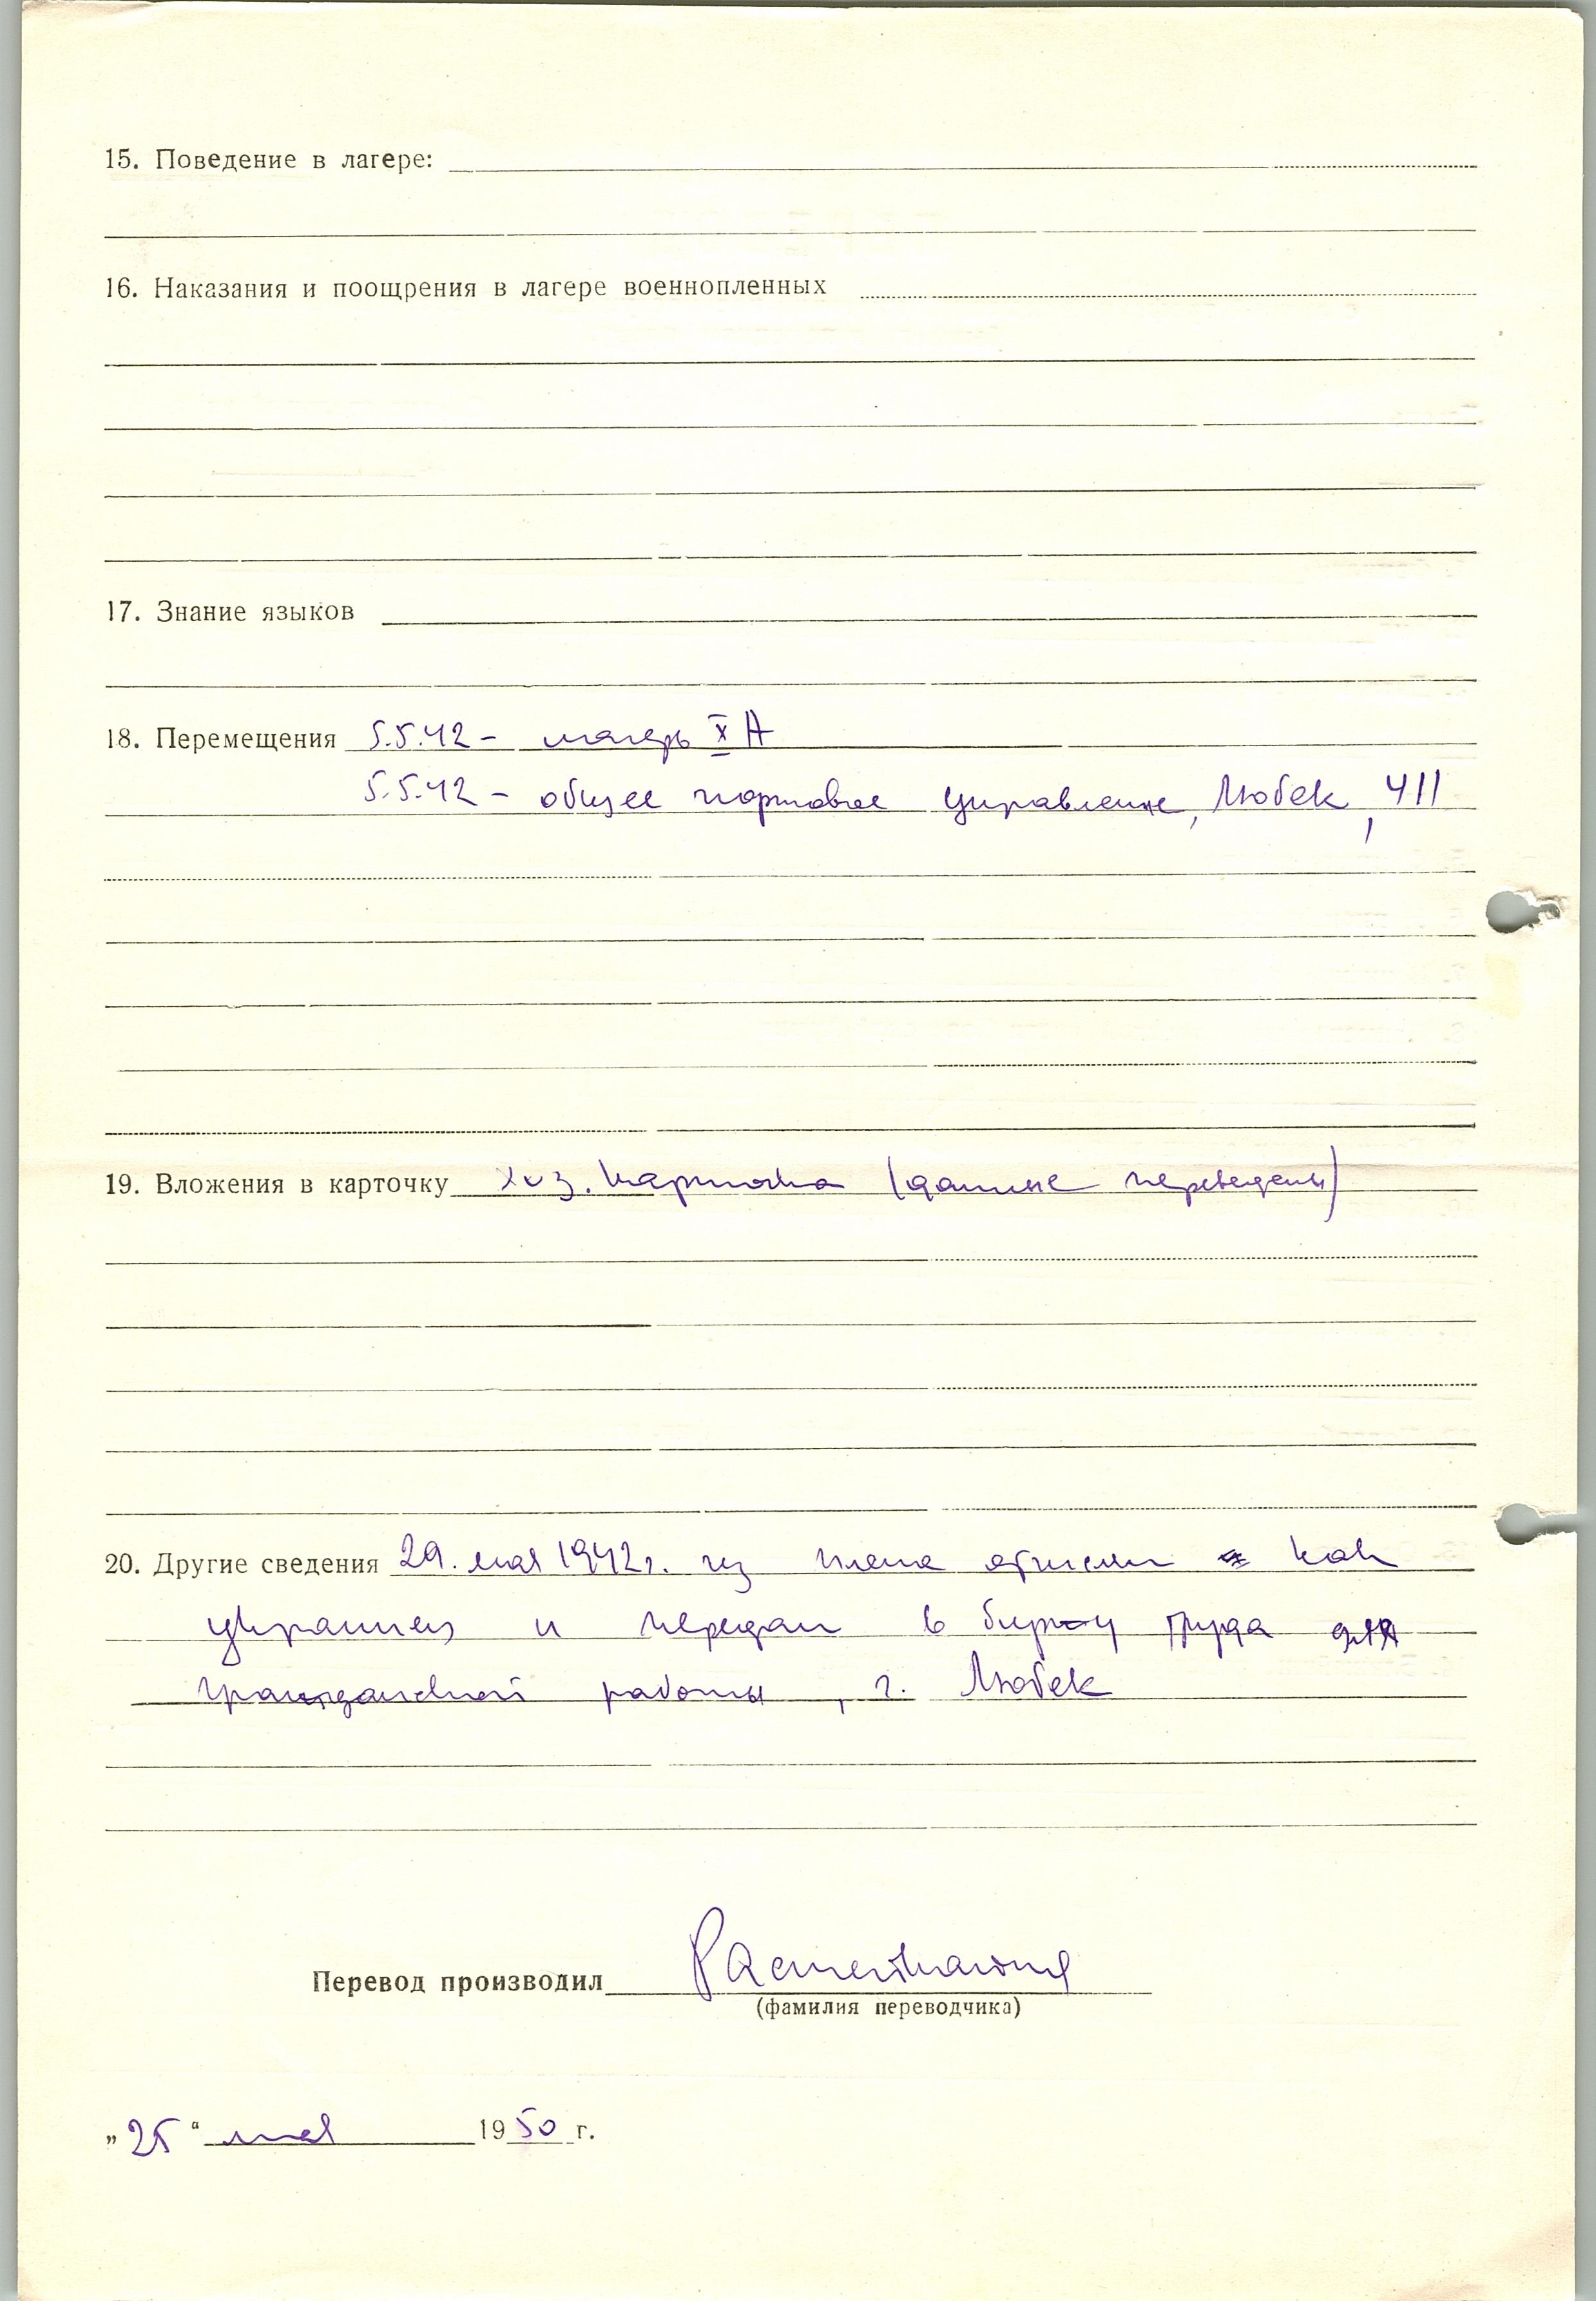 15. Поведение в лагере:
16. Наказания и поощрения в лагере военнопленных
17. Знание языков
18. Перемещения 5.5.42 – лагерь X А
5.5.42 – общее портовое управление, Любек, 411
19. Вложения в карточку хоз. карточка (данные переведены)
20. Другие сведения 29. мая 1942 г. из плена отпущен как
украинец и передан в биржу труда для
гражданской работы, г. Любек
Перевод производил
(фамилия переводчика)
„25“ мая 1950 г.